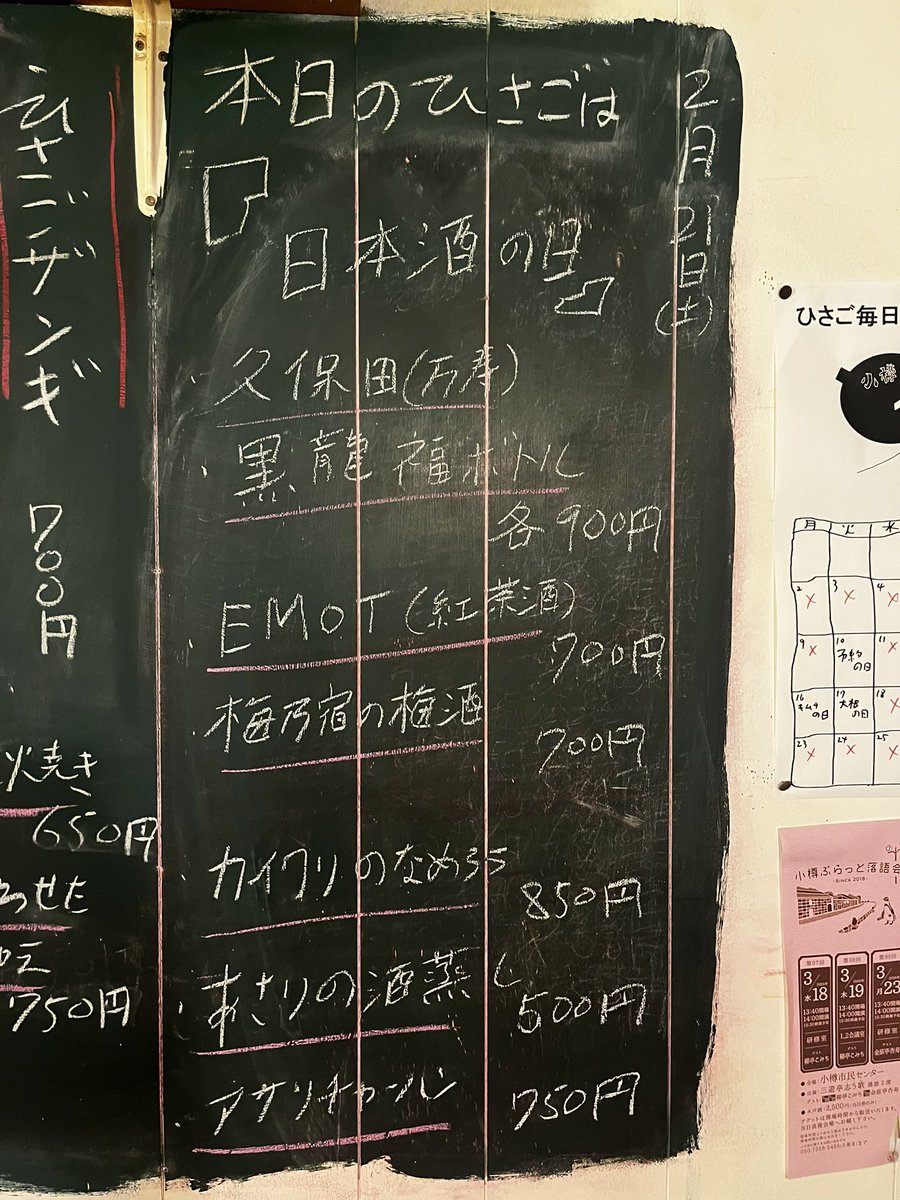 本日のひさごは
『日本酒の日』
2月21日(土)
・久保田(万寿)
・黒龍 福ボトル
各900円
・EMOT(紅茶酒)
700円
・梅乃宿の梅酒
700円
・カイワリのなめろう
850円
・あさりの酒蒸し
500円
・アサリチャーハン
750円
ひさごザンギ
700円
焼き
650円
わせた
750円
ひさご毎日
小樽
月 火 水
2 × 3 × 4 ×
9 × 10 予約の日 11 ×
16 キムチの日 17 大根の日 18 ×
23 × 24 × 25 ×
小樽ぷらっと落語会
-SINCE 2018-
第97回 第98回 第99回
3/水18 3/木19 3/月23
13:40開場 13:40開場
14:00開演 14:00開演
研修室 1,2会議室 研修室
ゲスト ゲスト ゲスト
柳亭こみち 柳亭こみち
●会場 小樽市民センター